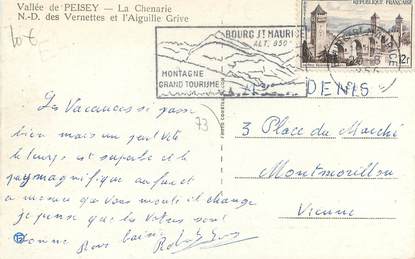 Vallée de PEISEY — La Chenarie
N.-D. des Vernettes et l'Aiguille Grive
10 €
BOURG ST MAURICE
ALT. 850
MONTAGNE
GRAND TOURISME
RÉPUBLIQUE FRANÇAISE
12F
73
DENIS
3 Place du Marché
Montmorillon
Vienne
Les Vacances si passe
bien mais un peu vite
le temps est superbe et le
pays magnifique au fur et
a mesure que vous monte il change
je pense que les votres sont
bonne